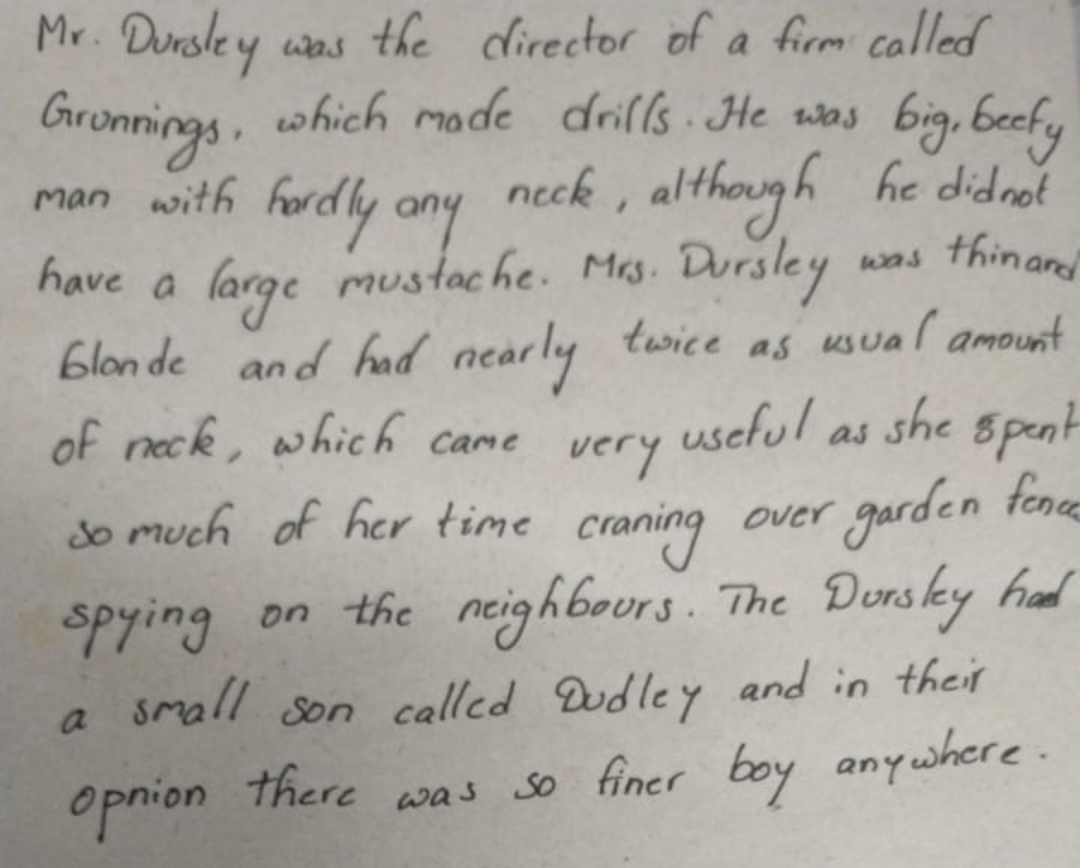 Mr. Dursley was the director of a firm called
Grunnings, which made drills. He was big, beefy
man with hardly any neck, although he did not
have a large mustache. Mrs. Dursley was thin and
blonde and had nearly twice as usual amount
of neck, which came very useful as she spent
so much of her time craning over garden fence
spying on the neighbours. The Dursley had
a small son called Dudley and in their
opnion there was so finer boy anywhere.